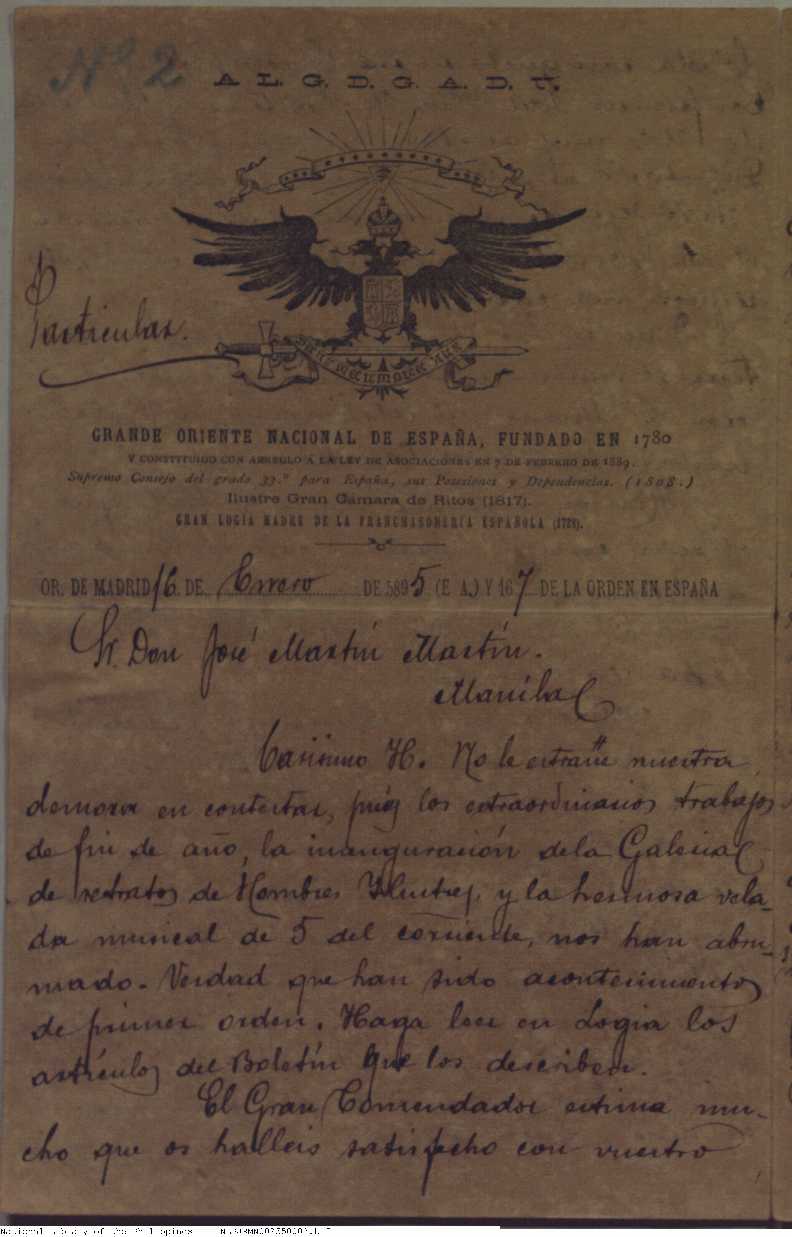 Nº 2
A L. G. D. G. A. D. U.
Particular.
GRANDE ORIENTE NACIONAL DE ESPAÑA, FUNDADO EN 1780
Y CONSTITUIDO CON ARREGLO Á LA LEY DE ASOCIACIONES EN 7 DE FEBRERO DE 1889.
Supremo Consejo del grado 33.º para España, sus Posesiones y Dependencias. (1808.)
Ilustre Gran Cámara de Ritos (1817).
GRAN LOGIA MADRE DE LA FRANCMASONERÍA ESPAÑOLA (1728).
OR. DE MADRID 16 DE Enero DE 5895 (E. A.) Y 167 DE LA ORDEN EN ESPAÑA
Sr. Don José Martín Martín.
Manila
Carísimo H. No le extrañe nuestra
demora en contestar, pues los extraordinarios trabajos
de fin de año, la inauguración de la Galería
de retratos de Hombres Ilustres, y la hermosa vela-
da musical de 5 del corriente, nos han abru-
mado. Verdad que han sido acontecimientos
de primer orden. Haga leer en Logia los
artículos del Boletín que los describen.
El Gran Comendador estima mu-
cho que os halleis satisfecho con vuestro
National Library of the Philippines